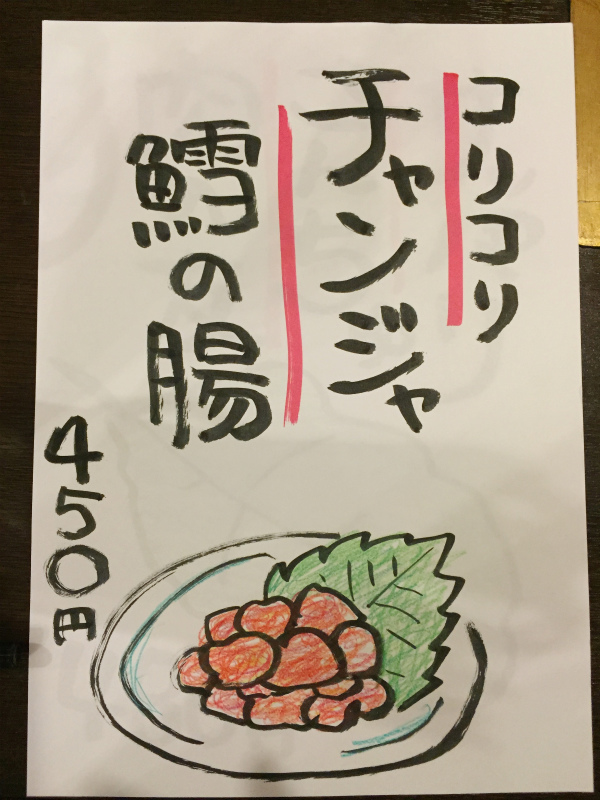 コリコリ
チャンジャ
鱈の腸
450円